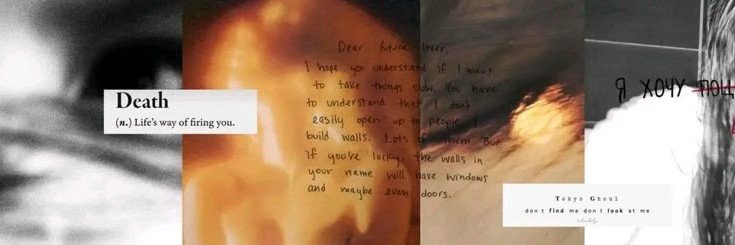 Death
(n.) Life's way of firing you.
Dear future lover,
I hope you understand if I want
to take things slow. You have
to understand that I don't
easily open up to people. I
build walls. Lots of them. But
if you're lucky, the walls in
your name will have windows
and maybe even doors.
Я ХОЧУ ПОЦ
Tokyo Ghoul
don't find me don't look at me